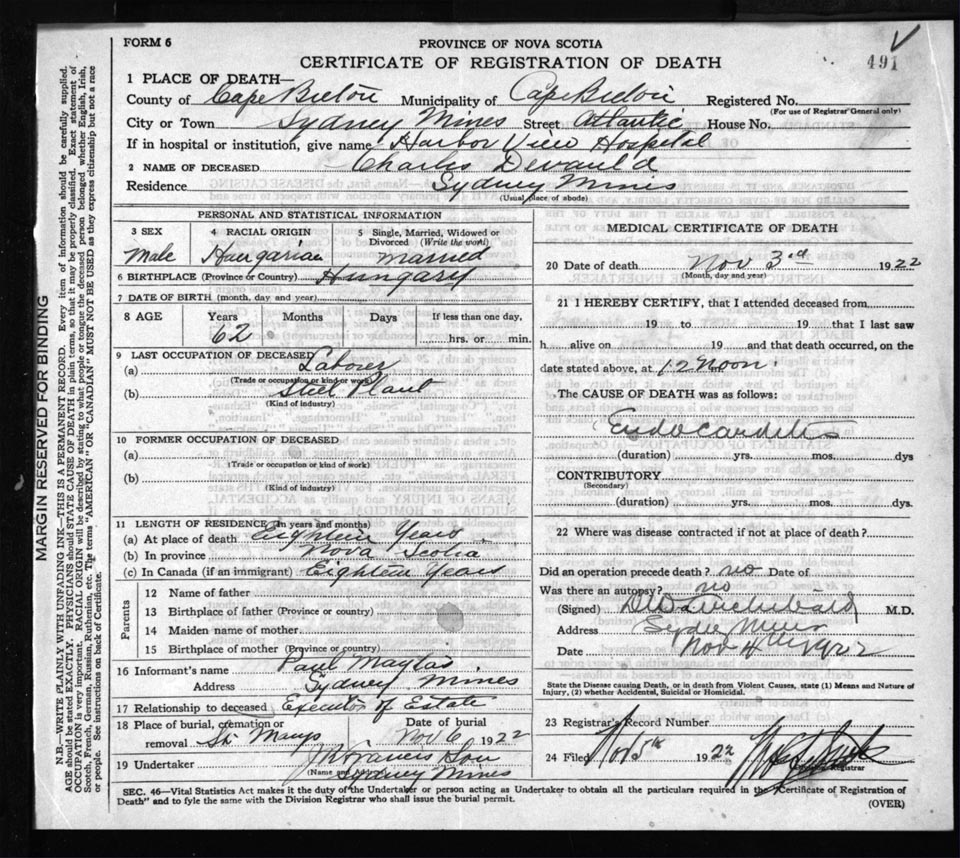 FORM 6
PROVINCE OF NOVA SCOTIA
CERTIFICATE OF REGISTRATION OF DEATH
491
1 PLACE OF DEATH—
County of Cape Breton Municipality of Cape Breton Registered No.
(For use of Registrar General only)
City or Town Sydney Mines Street Atlantic House No.
If in hospital or institution, give name Harbor View Hospital
2 NAME OF DECEASED Charles
Residence Sydney Mines
(Usual place of abode)
PERSONAL AND STATISTICAL INFORMATION
3 SEX
Male
4 RACIAL ORIGIN
Hungarian
5 Single, Married, Widowed or Divorced (Write the word)
Married
6 BIRTHPLACE (Province or Country) Hungary
7 DATE OF BIRTH (month, day and year)
8 AGE Years Months Days If less than one day,
62 hrs. or min.
9 LAST OCCUPATION OF DECEASED
(a) Laborer
(Trade or occupation or kind of work)
(b) Steel Plant
(Kind of industry)
10 FORMER OCCUPATION OF DECEASED
(a)
(Trade or occupation or kind of work)
(b)
(Kind of industry)
11 LENGTH OF RESIDENCE (in years and months)
(a) At place of death Eighteen Years
(b) In province Nova Scotia
(c) In Canada (if an immigrant) Eighteen Years
Parents
12 Name of father
13 Birthplace of father (Province or country)
14 Maiden name of mother
15 Birthplace of mother (Province or country)
16 Informant's name Paul
Address Sydney Mines
17 Relationship to deceased Executor of Estate
18 Place of burial, cremation or removal St. Marys
Date of burial Nov 6 1922
19 Undertaker J R Francis Son
(Name and Address) Sydney Mines
MEDICAL CERTIFICATE OF DEATH
20 Date of death Nov 3rd 1922
(Month, day and year)
21 I HEREBY CERTIFY, that I attended deceased from
19 to 19 that I last saw
h alive on 19 and that death occurred, on the
date stated above, at 12 Noon
The CAUSE OF DEATH was as follows:
Endocarditis
(duration) yrs. mos. dys
CONTRIBUTORY
(Secondary)
(duration) yrs. mos. dys.
22 Where was disease contracted if not at place of death?
Did an operation precede death? no Date of
Was there an autopsy? no
(Signed) Archibald M.D.
Address Sydney Mines
Date Nov 4th 1922
State the Disease causing Death, or in death from Violent Causes, state (1) Means and Nature of Injury, (2) whether Accidental, Suicidal or Homicidal.
23 Registrar's Record Number
24 Filed Nov 5th 1922
Registrar
SEC. 46—Vital Statistics Act makes it the duty of the Undertaker or person acting as Undertaker to obtain all the particulars required in the Certificate of Registration of
Death" and to fyle the same with the Division Registrar who shall issue the burial permit.
(OVER)
MARGIN RESERVED FOR BINDING
N.B.—WRITE PLAINLY WITH UNFADING INK—THIS IS A PERMANENT RECORD. Every item of information should be carefully supplied.
AGE should be stated EXACTLY. PHYSICIANS should STATE CAUSE OF DEATH in plain terms, so that it may be properly classified. Exact statement of
OCCUPATION is very important. RACIAL ORIGIN will be described by stating to what people or tongue the deceased person belonged whether English, Irish,
Scotch, French, German, Russian, Ruthenian, etc. The terms "AMERICAN" OR "CANADIAN" MUST NOT BE USED as they express citizenship but not a race
or people. See instructions on back of Certificate.